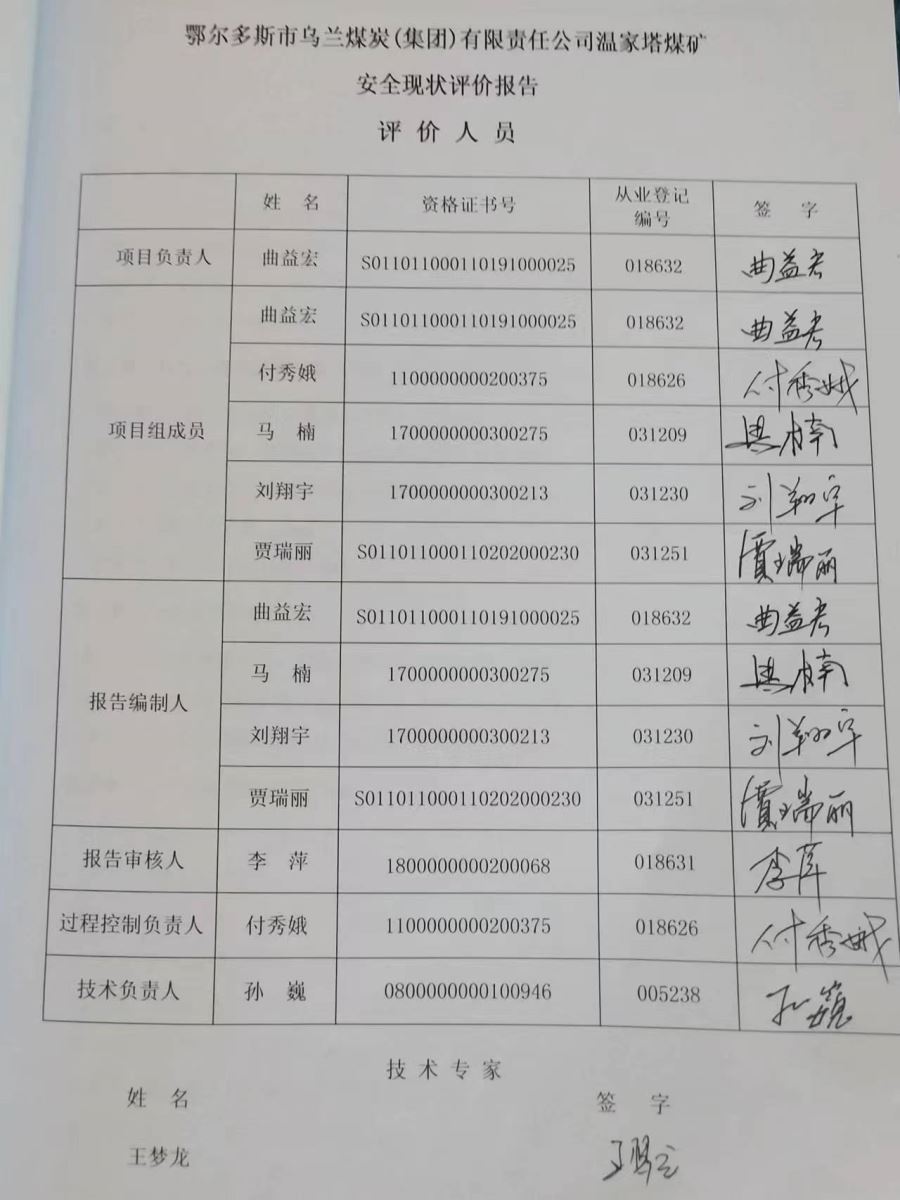 鄂尔多斯市乌兰煤炭(集团)有限责任公司温家塔煤矿
安全现状评价报告
评价人员
姓 名 资格证书号 从业登记编号 签 字
项目负责人 曲益宏 S011011000110191000025 018632 曲益宏
项目组成员 曲益宏 S011011000110191000025 018632 曲益宏
付秀娥 1100000000200375 018626 付秀娥
马 楠 1700000000300275 031209 马楠
刘翔宇 1700000000300213 031230 刘翔宇
贾瑞丽 S011011000110202000230 031251 賈瑞丽
报告编制人 曲益宏 S011011000110191000025 018632 曲益宏
马 楠 1700000000300275 031209 马楠
刘翔宇 1700000000300213 031230 刘翔宇
贾瑞丽 S011011000110202000230 031251 賈瑞丽
报告审核人 李 萍 1800000000200068 018631 李萍
过程控制负责人 付秀娥 1100000000200375 018626 付秀娥
技术负责人 孙 巍 0800000000100946 005238 孙巍
技术专家
姓 名 签 字
王梦龙